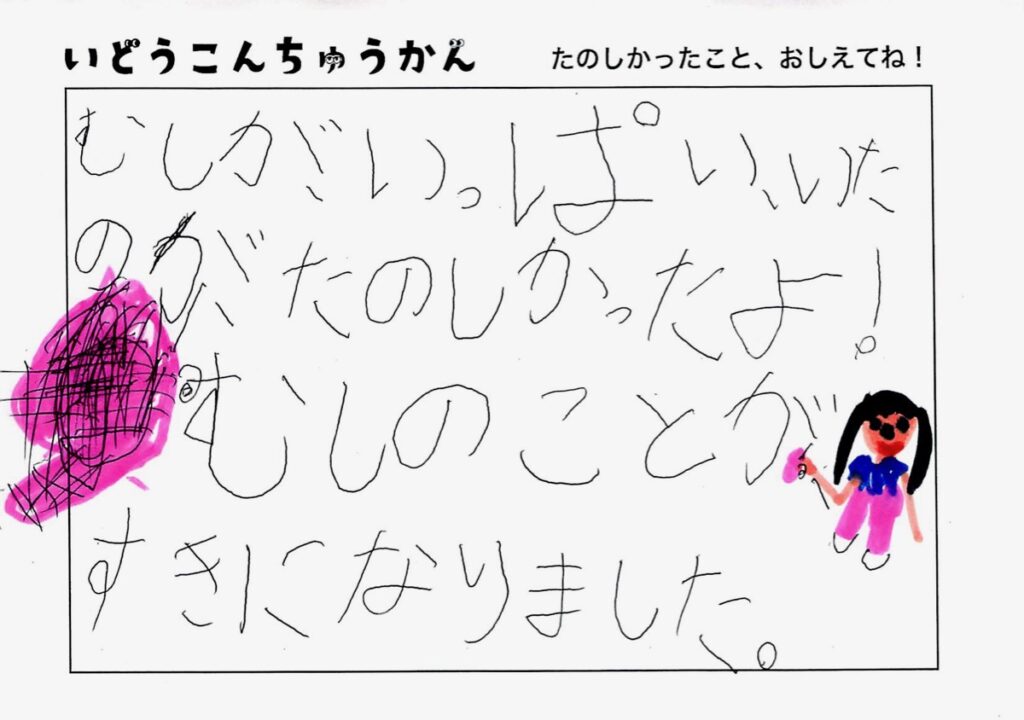 いどうこんちゅうかん
たのしかったこと、おしえてね！
むしがいっぱい、いた
のがたのしかったよ！
むしのことが
すきになりました。